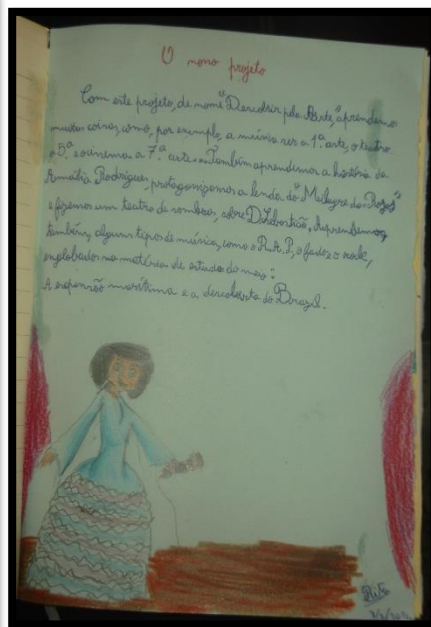 O nosso projeto
Com este projeto, de nome "Descobrir pela Arte," aprendemos
muitas coisas, como, por exemplo, a música ser a 1.ª arte, o teatro
a 5.ª e o cinema a 7.ª arte. Também aprendemos a história da
Amália Rodrigues, protagonizamos a lenda do "Milagre das Rosas"
e fizemos um teatro de sombras, sobre D. Sebastião. Aprendemos,
também, alguns tipos de música, como o R.A.P, o fado, e o rock,
englobados nas matérias de estudo do meio:
A expansão marítima e a descoberta do Brazil.
Rita